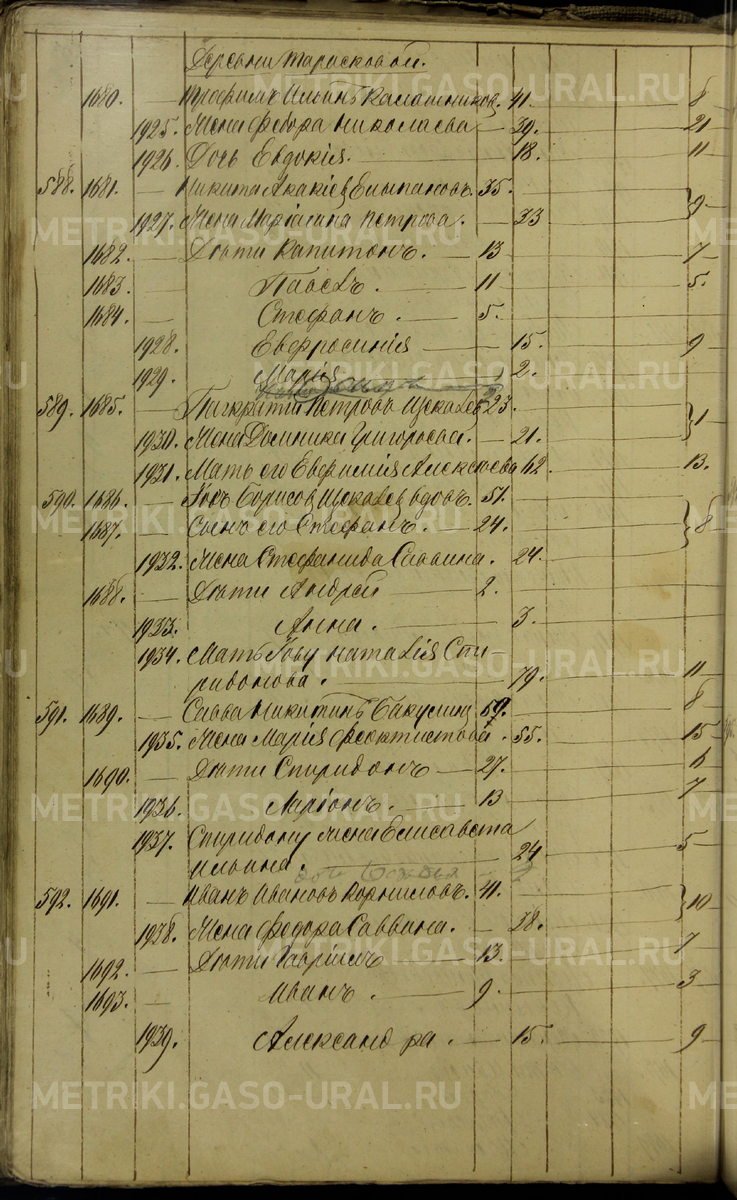 Деревни Тарасковой.
1680. — Трофимъ Ильинъ Калашников. 41. 8
1925. Жена Федора Николаева — 39. 21
1926. Дочь Евдокія. — 18. 11
588. 1681. — Никита Акакіев Епыпановъ. 35.
1927. Жена Маріамна Петрова. — 33 9
1682. — Дѣти Капитонъ. — 13 7
1683. — Павелъ — 11 5.
1684. — Стефанъ. — 5.
1928. Евфросинія — 15. 9
1929. Марія — 2.
589. 1685. — Панкратій Петровъ 23.
1930. Жена Домника Григорьева. — 21. 1
1931. Мать его Евфимія Алексѣева 62 13.
590. 1686. — Іовъ Борисов вдовъ. 57.
1687. — Сынъ его Стефанъ. — 24. 8
1932. Жена Стефанида Саввина. 24.
1688. — Дѣти Андрей 2.
1933. Анна. — 3.
1934. Мать Іову Наталія Спи-
ридонова. — 79. 11
591. 1689. — Савва Никитинъ Бакулин 59. 8
1935. Жена Марія Феоктистова. 55. 15
1690. — Дѣти Спиридонъ — 27. 6
1936. Ларіонъ. — 13 7
1937. Спиридону жена Елисавета
Ильина. — 24 5
592. 1691. — Иванъ Ивановъ Корниловъ. 41.
1938. Жена Федора Саввина. — 38. 10
1692. — Дѣти Гавріилъ — 13. 7
1693. — Иванъ. — 9. 3
1939. Александра. — 15. 9
METRIKI.GASO-URAL.RU